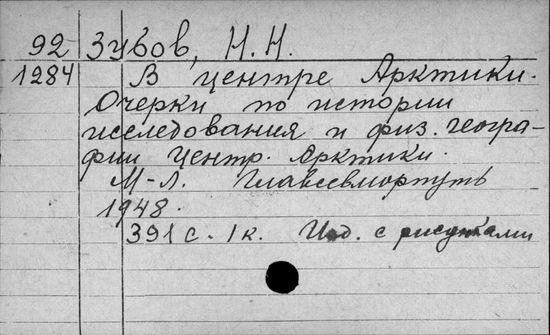 92 Зубов, Н.Н.
1284 В центре Арктики.
Очерки по истории
исследования и физ. геогра-
фии Центр. Арктики.
М-Л. Главсевморпуть
1948.
391 с. 1к. Изд. с рисунками